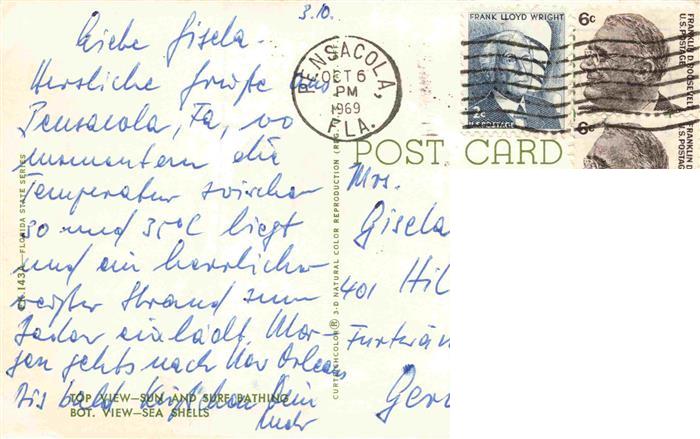 3.10.
Liebe Gisela
Herzliche Grüße aus
Pensacola, Fa, wo
momentan die
Temperatur zwischen
30 und 35°C liegt
und ein herrlicher
weißer Strand zum
Baden einlädt. Mor-
gen gehts nach New Orleans
Bis bald Dein
TOP VIEW—SUN AND SURF BATHING
BOT. VIEW—SEA SHELLS
FLORIDA STATE SERIES
PENSACOLA,
OCT 6
PM
1969
FLA.
CURTEICHCOLOR® 3-D NATURAL COLOR REPRODUCTION
FRANK LLOYD WRIGHT
2c
U.S. POSTAGE
6c
FRANKLIN D. ROOSEVELT
U.S. POSTAGE
6c
FRANKLIN D.
U.S. POS
POST CARD
Mrs.
Gisela
401 Hil
Furtwän
Ger